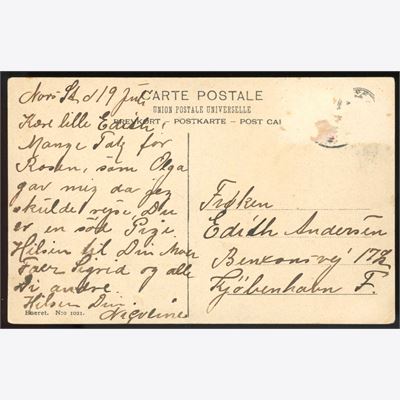 CARTE POSTALE
UNION POSTALE UNIVERSELLE
BREVKORT - POSTKARTE - POST CAR
d 19 Juli
Kære lille Edith!
Mange Tak for
Rosen, som Olga
gav mig da jeg
skulde rejse, Du
er en sød Pige.
Hilsen til Din Moer
Faer Sigrid og alle
Di andre.
Hilsen Din
Nicoline
Eneret. N:o 1021.
Frøken
Edith Andersen
Benzonsvej
Kjøbenhavn F.